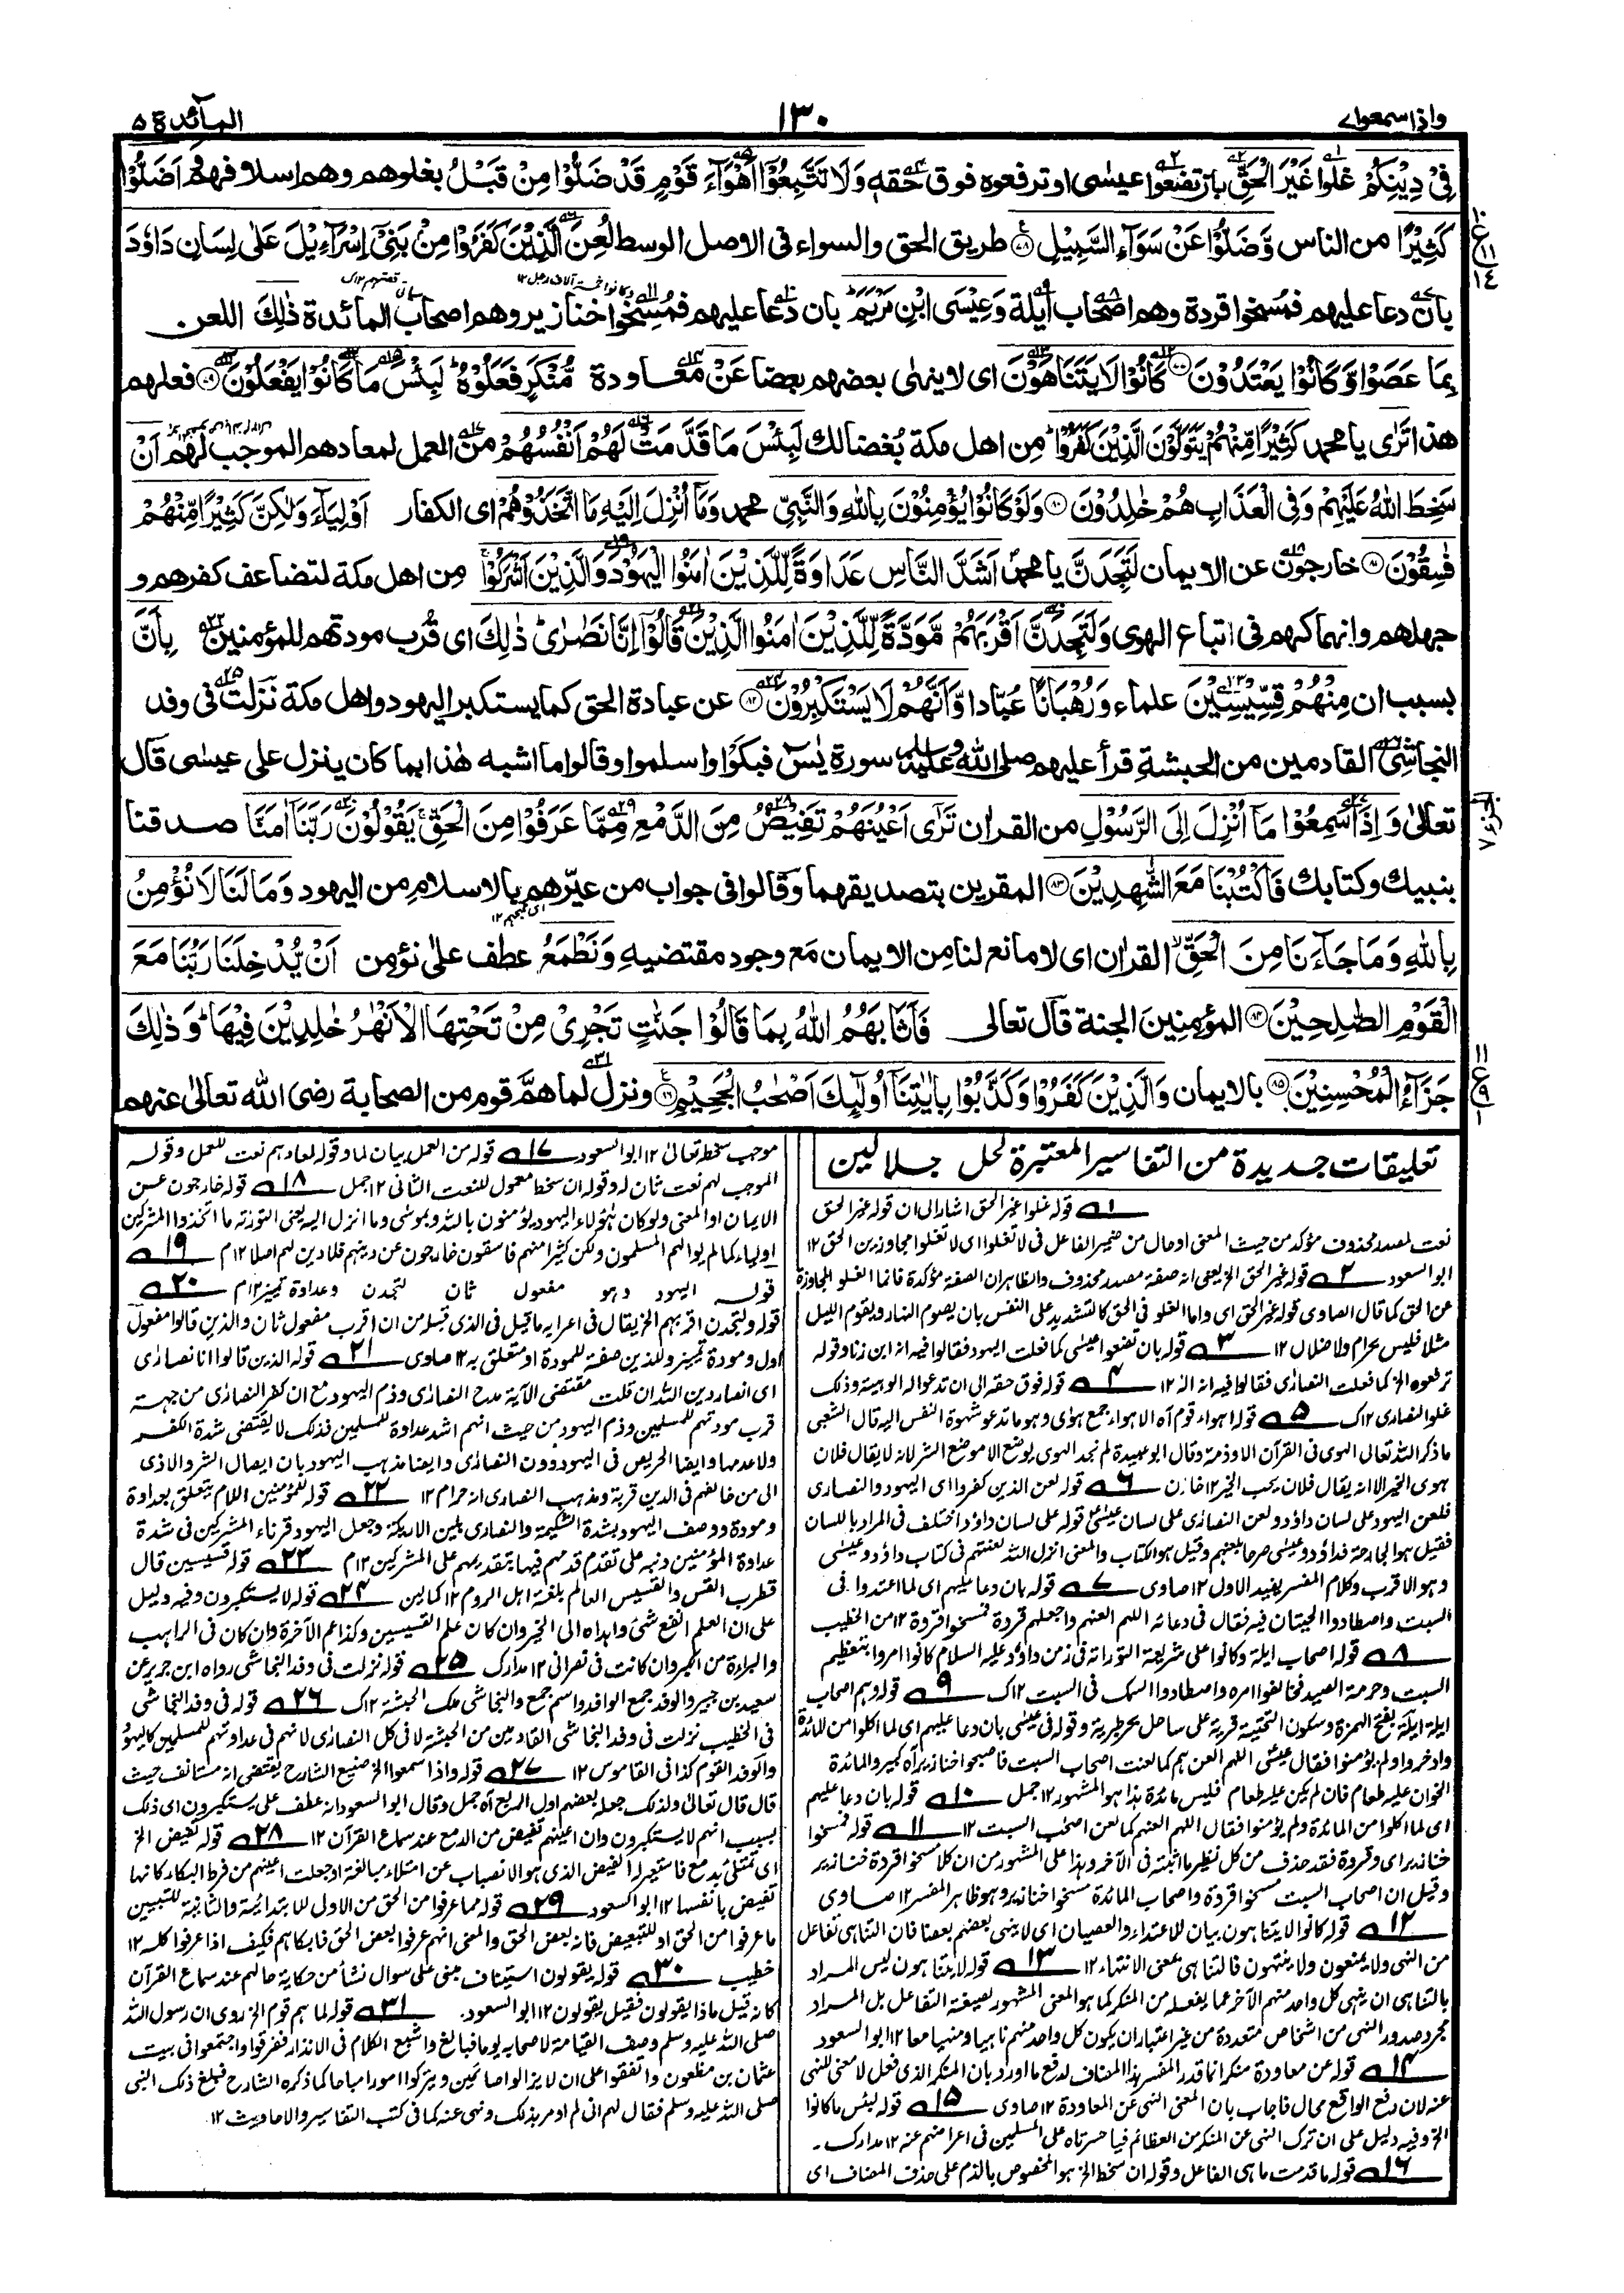 واذا سمعوا٧
١٣٠
المآئدة ٥
فِىْ دِيْنِكُمْ غلوا غَيْرَ الْحَقِّ بان تضعوا عيسٰى او ترفعوه فوق حقه وَلَا تَتَّبِعُوْٓا اَهْوَآءَ قَوْمٍ قَدْ ضَلُّوْا مِنْ قَبْلُ بغلوهم وهم اسلافهم وَ اَضَلُّوْا
كَثِيْرًا من الناس وَّضَلُّوْا عَنْ سَوَآءِ السَّبِيْلِ ۝ طريق الحق والسواء فى الاصل الوسط لُعِنَ الَّذِيْنَ كَفَرُوْا مِنْۢ بَنِىْٓ اِسْرَآءِيْلَ عَلٰى لِسَانِ دَاوٗدَ
بان دعا عليهم فمسخوا قردة وهم اصحاب ايلة وَعِيْسَى ابْنِ مَرْيَمَ بان دعا عليهم فمُسِخوا خنازير وهم اصحاب المائدة ذٰلِكَ اللعن
بِمَا عَصَوْا وَّكَانُوْا يَعْتَدُوْنَ ۝ كَانُوْا لَا يَتَنَاهَوْنَ اى لا ينهٰى بعضهم بعضا عَنْ معاودة مُّنْكَرٍ فَعَلُوْهُ لَبِئْسَ مَا كَانُوْا يَفْعَلُوْنَ ۝ فعلهم
هذا تَرٰى يا محمد كَثِيْرًا مِّنْهُمْ يَتَوَلَّوْنَ الَّذِيْنَ كَفَرُوْا من اهل مكة بُغضا لك لَبِئْسَ مَا قَدَّمَتْ لَهُمْ اَنْفُسُهُمْ من العمل لمعادهم الموجب لهم اَنْ
سَخِطَ اللّٰهُ عَلَيْهِمْ وَفِى الْعَذَابِ هُمْ خٰلِدُوْنَ ۝ وَلَوْ كَانُوْا يُؤْمِنُوْنَ بِاللّٰهِ وَالنَّبِيِّ محمد وَمَآ اُنْزِلَ اِلَيْهِ مَا اتَّخَذُوْهُمْ اى الكفار اَوْلِيَآءَ وَلٰكِنَّ كَثِيْرًا مِّنْهُمْ
فٰسِقُوْنَ ۝ خارجون عن الايمان لَتَجِدَنَّ يا محمد اَشَدَّ النَّاسِ عَدَاوَةً لِّلَّذِيْنَ اٰمَنُوا الْيَهُوْدَ وَالَّذِيْنَ اَشْرَكُوْا من اهل مكة لتضاعف كفرهم و
جهلهم وانهماكهم فى اتباع الهوى وَلَتَجِدَنَّ اَقْرَبَهُمْ مَّوَدَّةً لِّلَّذِيْنَ اٰمَنُوا الَّذِيْنَ قَالُوْٓا اِنَّا نَصٰرٰى ذٰلِكَ اى قُرب مودتهم للمؤمنين بِاَنَّ
بسبب ان مِنْهُمْ قِسِّيْسِيْنَ علماء وَرُهْبَانًا عُبّادا وَّاَنَّهُمْ لَا يَسْتَكْبِرُوْنَ ۝ عن عبادة الحق كما يستكبر اليهود واهل مكة نزلت فى وفد
النجاشى القادمين من الحبشة قرأ عليهم صلى الله عليه وسلم سورة يٰسٓ فبكوا واسلموا وقالوا ما اشبه هٰذا بما كان ينزل على عيسٰى قال
تعالٰى وَاِذَا سَمِعُوْا مَآ اُنْزِلَ اِلَى الرَّسُوْلِ من القراٰن تَرٰٓى اَعْيُنَهُمْ تَفِيْضُ مِنَ الدَّمْعِ مِمَّا عَرَفُوْا مِنَ الْحَقِّ يَقُوْلُوْنَ رَبَّنَآ اٰمَنَّا صدقنا
بنبيك وكتابك فَاكْتُبْنَا مَعَ الشّٰهِدِيْنَ ۝ المقرين بتصديقهما وقالوا فى جواب من عيّرهم بالاسلام من اليهود وَمَا لَنَا لَا نُؤْمِنُ
بِاللّٰهِ وَمَا جَآءَنَا مِنَ الْحَقِّ القراٰن اى لا مانع لنا من الايمان مع وجود مقتضيه وَنَطْمَعُ عطف على نؤمن اَنْ يُّدْخِلَنَا رَبُّنَا مَعَ
الْقَوْمِ الصّٰلِحِيْنَ ۝ المؤمنين الجنة قال تعالى فَاَثَابَهُمُ اللّٰهُ بِمَا قَالُوْا جَنّٰتٍ تَجْرِىْ مِنْ تَحْتِهَا الْاَنْهٰرُ خٰلِدِيْنَ فِيْهَا وَذٰلِكَ
جَزَآءُ الْمُحْسِنِيْنَ ۝ بالايمان وَالَّذِيْنَ كَفَرُوْا وَكَذَّبُوْا بِاٰيٰتِنَآ اُولٰٓئِكَ اَصْحٰبُ الْجَحِيْمِ ۝ ونزل لما همّ قوم من الصحابة رضى الله تعالٰى عنهم
تعليقات جديدة من التفاسير المعتبرة لحل جلالين
١ قوله غلوا غير الحق اشار الى ان قوله غير الحق
نعت لمصدر محذوف مؤكد من حيث المعنى او حال من ضمير الفاعل فى لا تغلوا اى لا تغلوا مجاوزين الحق ١٢
ابو السعود ٢ قوله غير الحق الخ يعنى انه صفة مصدر محذوف والظاهر ان الصفة مؤكدة فانما الغلو المجاوزة
عن الحق كما قال الصاوى قوله غير الحق اى واما الغلو فى الحق كالتشديد على النفس بان يصوم النهار ويقوم الليل
مثلا فليس بحرام ولا ضلال ١٢ ٣ قوله بان تضعوا عيسى كما فعلت اليهود فقالوا فيه انه ابن زنا وقوله
ترفعوه الخ كما فعلت النصارى فقالوا فيه انه اله ١٢ ٤ قوله فوق حقه الى ان تدعوا له الوهية وذلك
غلو النصارى ١٢ك ٥ قوله اهواء قوم آه الاهواء جمع هوى وهو ما تدعو شهوة النفس اليه قال الشعبى
ما ذكر الله تعالى الهوى فى القرآن الا وذمه وقال ابو عبيدة لم نجد الهوى يوضع الا موضع الشر لانه لا يقال فلان
يهوى الخير الا انه يقال فلان يحب الخير ١٢ خازن ٦ قوله لعن الذين كفروا اى اليهود والنصارى
فلعن اليهود على لسان داؤد ولعن النصارى على لسان عيسى قوله على لسان داؤد اختلف فى المراد باللسان
فقيل هو الجارحة فداؤد وعيسى صرحا بلعنهم وقيل هو الكتاب والمعنى انزل الله لعنتهم فى كتاب داؤد وعيسى
وهو الاقرب وكلام المفسر يفيد الاول ١٢ صاوى ٧ قوله بان دعا عليهم اى لما اعتدوا فى
السبت واصطادوا الحيتان فيه فقال فى دعائه اللهم العنهم واجعلهم قردة فمسخوا قردة ١٢ من الخطيب
٨ قوله اصحاب ايلة وكانوا على شريعة التوراة فى زمن داؤد عليه السلام كانوا امروا بتعظيم
السبت وحرمة الصيد فخالفوا امره واصطادوا السمك فى السبت ١٢ك ٩ قوله وهم اصحاب
ايلة ايلة بفتح الهمزة وسكون التحتية قرية على ساحل بحر طبرية وقوله فى عيسى بان دعا عليهم اى لما اكلوا من المائدة
وادخروا ولم يؤمنوا فقال عيسى اللهم العن هم كما لعنت اصحاب السبت فاصبحوا خنازير آه كبير والمائدة
الخوان عليه طعام فان لم يكن عليه طعام فليس مائدة هذا هو المشهور ١٢ جمل ١٠ قوله بان دعا عليهم
اى لما اكلوا من المائدة ولم يؤمنوا فقال اللهم العنهم كما لعن اصحب السبت ١٢ ١١ قوله فمسخوا
خنازير اى وقردة فقد حذف من كل نظير ما اثبته فى الآخر وهذا على المشهور من ان كلا مسخوا قردة وخنازير
وقيل ان اصحاب السبت مسخوا قردة واصحاب المائدة مسخوا خنازير وهو ظاهر المفسر ١٢ صاوى
١٢ قوله كانوا لا يتناهون بيان للاعتداء والعصيان اى لا ينهى بعضهم بعضا فان التناهى تفاعل
من النهى ولا يمنعون ولا ينتهون فالتناهى بمعنى الانتهاء ١٢ ١٣ قوله لا يتناهون ليس المراد
بالتناهى ان ينهى كل واحد منهم الآخر عما يفعله من المنكر كما هو المعنى المشهور بصيغة التفاعل بل المراد
مجرد صدور النهى من اشخاص متعددة من غير اعتبار ان يكون كل واحد منهم ناهيا ومنهيا معا ١٢ ابو السعود
١٤ قوله عن معاودة منكر انما قدر المفسر هذا المضاف لدفع ما اورد بان المنكر الذى فعل لا معنى للنهى
عنه لان رفع الواقع محال فاجاب بان المعنى النهى عن المعاودة ١٢ صاوى ١٥ قوله لبئس ما كانوا
الخ وفيه دليل على ان ترك النهى عن المنكر من العظائم فيا حسرتاه على المسلمين فى اعراضهم عنه ١٢ مدارك۔
١٦ قوله ما قدمت ما هى الفاعل وقوله ان سخط الخ هو المخصوص بالذم على حذف المضاف اى
موجب سخطه تعالى ١٢ ابو السعود ١٧ قوله من العمل بيان لما وقوله لمعادهم نعت للعمل وقوله
الموجب لهم نعت ثان له وقوله ان سخط معمول للنعت الثانى ١٢ جمل ١٨ قوله خارجون عن
الايمان او المعنى ولو كان هؤلاء اليهود يؤمنون بالله وبموسى وما انزل اليه يعنى التوراة ما اتخذوا المشركين
اولياء كما لم يوالهم المسلمون ولكن كثيرا منهم فاسقون خارجون عن دينهم فلا دين لهم اصلا ١٢م ١٩
قوله اليهود وهو مفعول ثان لتجدن وعداوة تميز ١٢م ٢٠
قوله ولتجدن اقربهم الخ يقال فى اعرابه ما قيل فى الذى قبله من ان اقرب مفعول ثان والذين قالوا مفعول
اول ومودة تميز وللذين صفة للمودة او متعلق به ١٢ صاوى ٢١ قوله الذين قالوا انا نصارى
اى انصار دين الله ان قلت مقتضى الآية مدح النصارى وذم اليهود مع ان كفر النصارى من جهة
قرب مودتهم للمسلمين وذم اليهود من حيث انهم اشد عداوة للمسلمين فذلك لا يقتضى شدة الكفر
ولا عدمها وايضا الحريص فى اليهود دون النصارى وايضا مذهب اليهود بان ايصال الشر والاذى
الى من خالفهم فى الدين قربة ومذهب النصارى انه حرام ١٢ ٢٢ قوله للمؤمنين اللام يتعلق بعداوة
ومودة ووصف اليهود بشدة الشكيمة والنصارى بلين الاريكة وجعل اليهود قرناء المشركين فى شدة
عداوة المؤمنين ونبه على تقدم قدمهم فيها بتقديمهم على المشركين ١٢م ٢٣ قوله قسيسين قال
قطرب القس والقسيس العالم بلغة اهل الروم ١٢ كمالين ٢٤ قوله لا يستكبرون وفيه دليل
على ان العلم انفع شئ واهداه الى الخير وان كان علم القسيسين وكذا غم الآخرة وان كان فى الراهب
والبراءة من الكبر وان كانت فى نصرانى ١٢ مدارك ٢٥ قوله نزلت فى وفد النجاشى رواه ابن جرير عن
سعيد بن جبير والوفد جمع الوافد واسم جمع والنجاشى ملك الحبشة ١٢ك ٢٦ قوله فى وفد النجاشى
فى الخطيب نزلت فى وفد النجاشى القادمين من الحبشة لا فى كل النصارى لانهم فى عداوتهم للمسلمين كاليهود
والوفد القوم كذا فى القاموس ١٢ ٢٧ قوله واذا سمعوا الخ صنيع الشارح يقتضى انه مستانف حيث
قال قال تعالى ولذلك جعله بعضهم اول الربع آه جمل وقال ابو السعود انه عطف على يستكبرون اى ذلك
بسبب انهم لا يستكبرون وان اعينهم تفيض من الدمع عند سماع القرآن ١٢ ٢٨ قوله تفيض الخ
اى تمتلئ بدمع فاستعير له الفيض الذى هو الانصباب عن امتلاء مبالغة او جعلت اعينهم من فرط البكاء كانها
تفيض بانفسها ١٢ ابو السعود ٢٩ قوله مما عرفوا من الحق من الاولى للابتدائية والثانية للتبيين
ما عرفوا من الحق او للتبعيض فانه بعض الحق والمعنى انهم عرفوا بعض الحق فابكاهم فكيف اذا عرفوا كله ١٢
خطيب ٣٠ قوله يقولون استيناف مبنى على سوال نشأ من حكاية حالهم عند سماع القرآن
كانه قيل ماذا يقولون فقيل يقولون ١٢ ابو السعود. ٣١ قوله لما هم قوم الخ روى ان رسول الله
صلى الله عليه وسلم وصف القيامة لاصحابه يوما فبالغ واشبع الكلام فى الانذار ففرقوا واجتمعوا فى بيت
عثمان بن مظعون واتفقوا على ان لا يزالوا صائمين ويتركوا امورا مباحا كما ذكره الشارح فبلغ ذلك النبى
صلى الله عليه وسلم فقال لهم انى لم اومر بذلك ونهى عنه كما فى كتب التفاسير والاحاديث ١٢